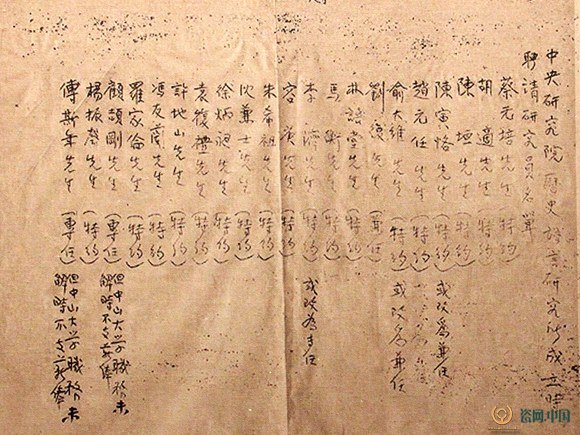 中央研究院歷史語言研究所成立時
聘請研究員名單
蔡元培先生（特約）
胡適先生（特約）
陳垣先生（特約）
陳寅恪先生（特約）或改為兼任
趙元任先生（特約）或改為兼任
俞大維先生（特約）或改為兼任
劉復先生（兼任）
林語堂先生（特約）
馬衡先生（特約）
李濟先生（特約）或改為專任
容庚先生（特約）
朱希祖先生（特約）
沈兼士先生（特約）
徐炳昶先生（特約）
袁復禮先生（特約）
許地山先生（特約）
馮友蘭先生（特約）
羅家倫先生（特約）
顧頡剛先生（專任）但中山大学職務未
解時不支薪俸
楊振聲先生（特約）
傅斯年先生（專任）但中山大学職務未
解時不支薪俸
瓷网·中国